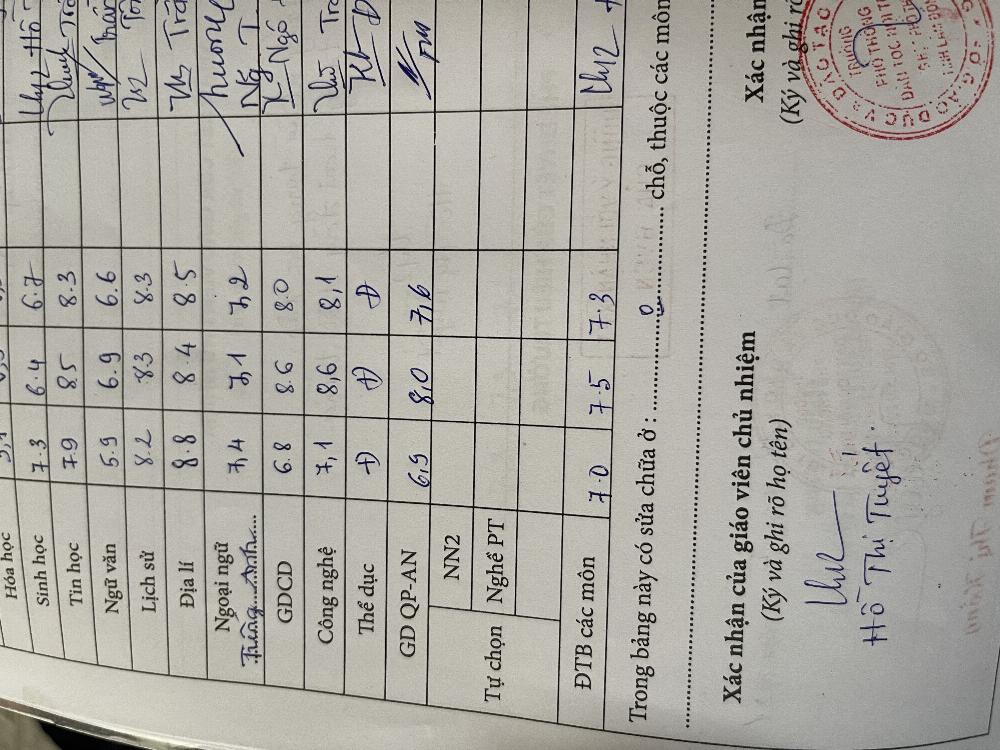 Hóa học
Sinh học 7.3 6.4 6.7
Tin học 7.9 8.5 8.3
Ngữ văn 5.9 6.9 6.6
Lịch sử 8.2 8.3 8.3
Địa lí 8.8 8.4 8.5
Ngoại ngữ 7,4 7,1 7,2
Tiếng Anh
GDCD 6.8 8.6 8.0
Công nghệ 7,1 8,6 8,1
Thể dục Đ Đ Đ
GD QP-AN 6,9 8,0 7,6
Tự chọn
NN2
Nghề PT
ĐTB các môn 7.0 7.5 7.3
Trong bảng này có sửa chữa ở : 0 chỗ, thuộc các môn
Xác nhận của giáo viên chủ nhiệm
(Ký và ghi rõ họ tên)
Hồ Thị Tuyết.
Xác nhận
(Ký và ghi rõ
TRƯỜNG
PHỔ THÔNG